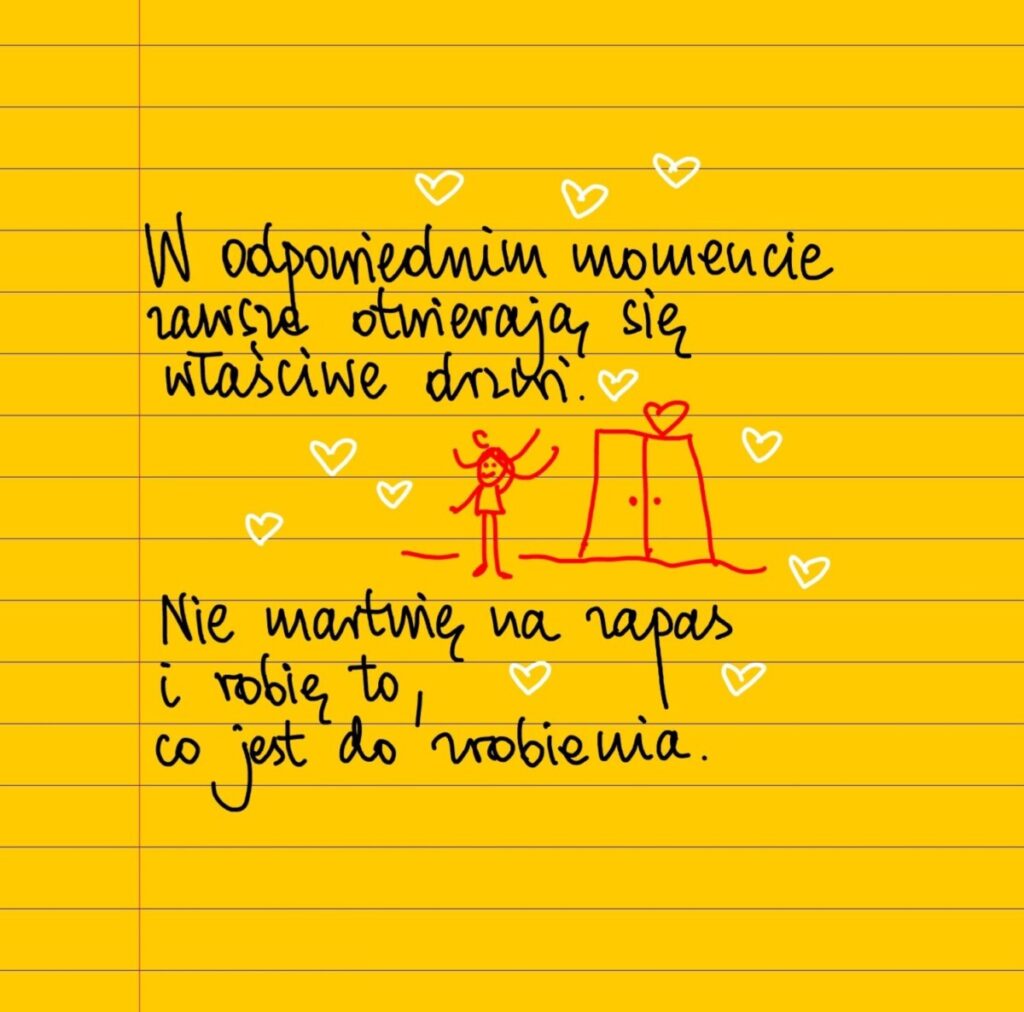 W odpowiednim momencie
zawsze otwierają się
właściwe drzwi.
Nie martwię na zapas
i robię to,
co jest do zrobienia.